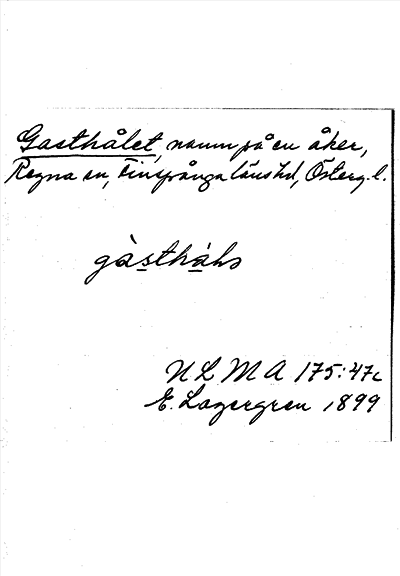 Gasthålet, namn på en åker,
Regna sn, Finspånga läns hd, Österg. l.
gàstháls
ULMA 175:47c
E. Lagergren 1899